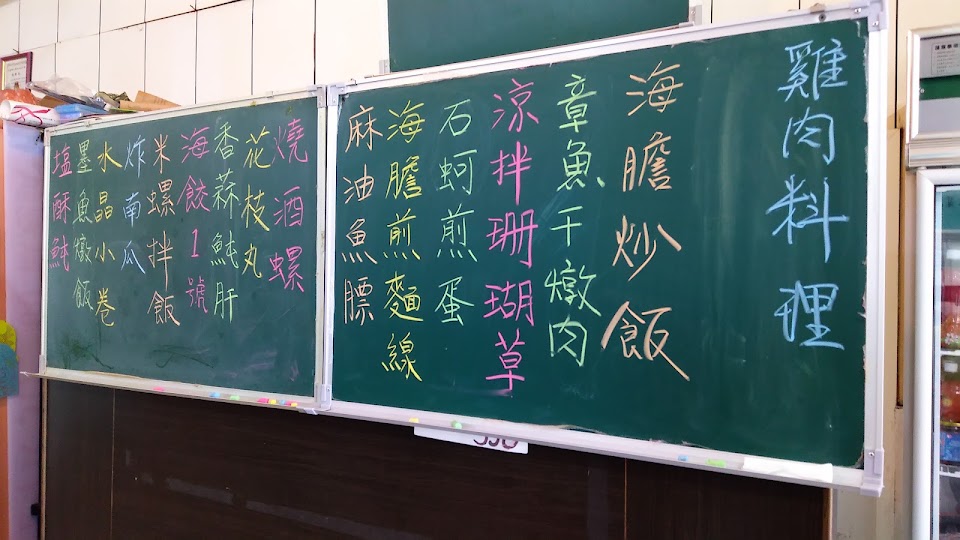 雞肉料理
海膽炒飯
章魚干燉肉
涼拌珊瑚草
石蚵煎蛋
海膽煎麵線
麻油魚膘
燒酒螺
花枝丸
香蒜魨肝
海餃1號
米螺拌飯
炸南瓜
水晶小卷
墨魚燉飯
塩酥魨